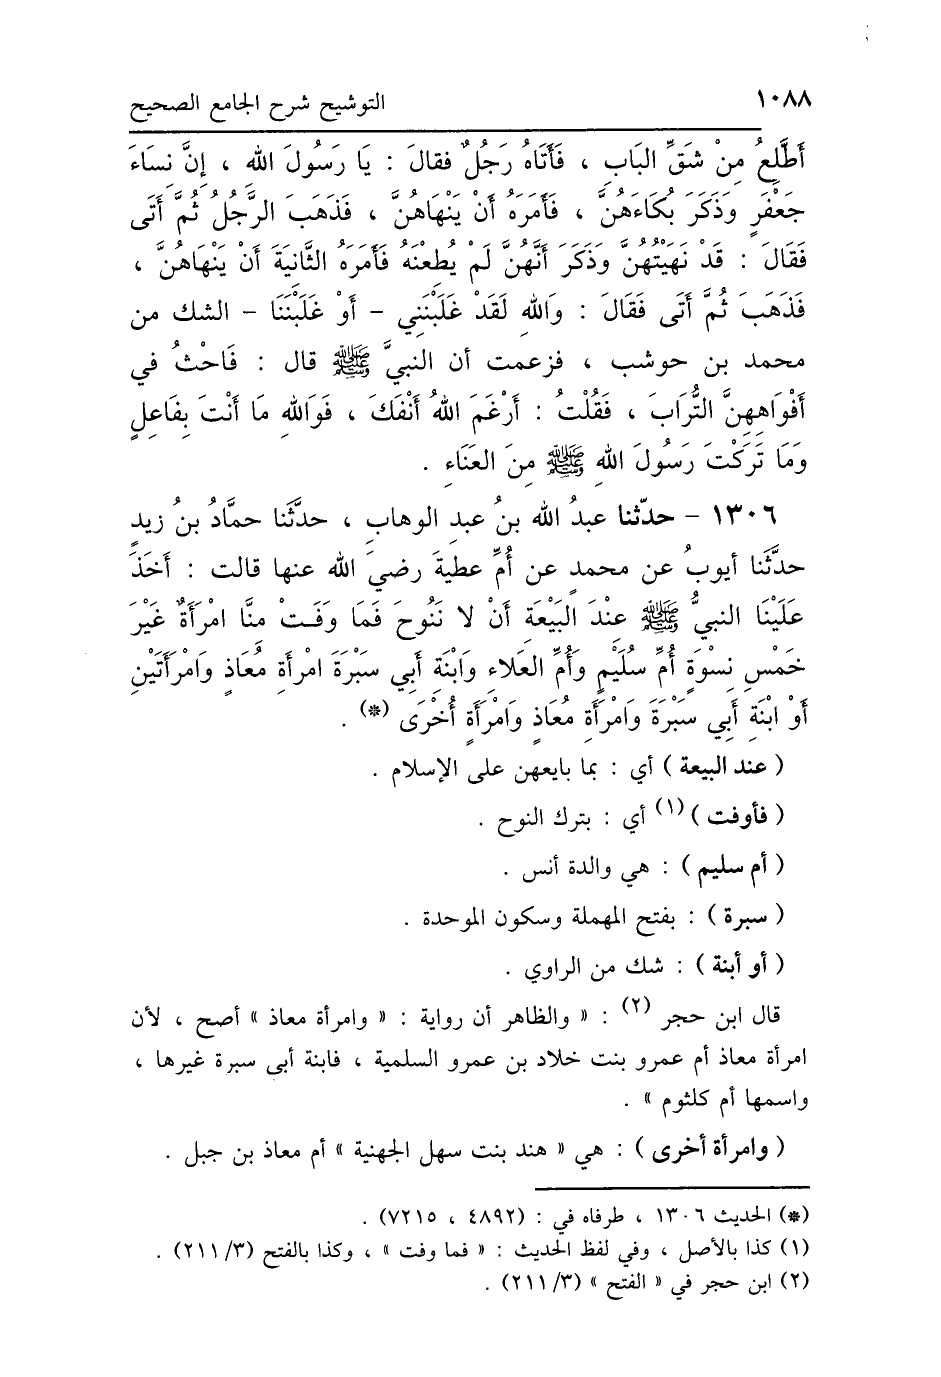 ١٠٨٨ التوشيح شرح الجامع الصحيح
أَطَّلِعُ مِنْ شَقِّ البَابِ ، فَأَتَاهُ رَجُلٌ فقالَ : يَا رَسُولَ اللهِ ، إِنَّ نِسَاءَ
جَعْفَرٍ وَذَكَرَ بُكَاءَهُنَّ ، فَأَمَرَهُ أَنْ يَنْهَاهُنَّ ، فَذَهَبَ الرَّجُلُ ثُمَّ أَتَى
فَقَالَ : قَدْ نَهَيْتُهُنَّ وَذَكَرَ أَنَّهُنَّ لَمْ يُطِعْنَهُ فَأَمَرَهُ الثَّانِيَةَ أَنْ يَنْهَاهُنَّ ،
فَذَهَبَ ثُمَّ أَتَى فَقَالَ : وَاللهِ لَقَدْ غَلَبْنَنِي – أَوْ غَلَبْنَنَا – الشك من
محمد بن حوشب ، فزعمت أن النبيَّ ﷺ قال : فَاحْثُ في
أَفْوَاهِهِنَّ التُّرَابَ ، فَقُلْتُ : أَرْغَمَ اللهُ أَنْفَكَ ، فَوَاللهِ مَا أَنْتَ بِفَاعِلٍ
وَمَا تَرَكْتَ رَسُولَ اللهِ ﷺ مِنَ العَنَاءِ .
١٣٠٦ – حدّثنا عبدُ الله بنُ عبدِ الوهابِ ، حدَّثَنا حمَّادُ بنُ زيدٍ
حدَّثَنا أيوبُ عن محمدٍ عن أُمِّ عطيةَ رضيَ الله عنها قالت : أَخَذَ
عَلَيْنَا النبيُّ ﷺ عِنْدَ البَيْعَةِ أَنْ لا نَنُوحَ فَمَا وَفَتْ مِنَّا امْرَأَةٌ غَيْرَ
خَمْسِ نِسْوَةٍ أُمِّ سُلَيْمٍ وَأُمِّ العَلاءِ وَابْنَةِ أَبِي سَبْرَةَ امْرأَةِ مُعَاذٍ وَامْرَأَتَيْنِ
أَوْ ابْنَةِ أَبِي سَبْرَةَ وَامْرَأَةِ مُعَاذٍ وَامْرَأَةٍ أُخْرَى (*) .
( عند البيعة ) أي : بما بايعهن على الإسلام .
( فأوفت )(١) أي : بترك النوح .
( أم سليم ) : هي والدة أنس .
( سبرة ) : بفتح المهملة وسكون الموحدة .
( أو أبنة ) : شك من الراوي .
قال ابن حجر (٢) : « والظاهر أن رواية : « وامرأة معاذ » أصح ، لأن
امرأة معاذ أم عمرو بنت خلاد بن عمرو السلمية ، فابنة أبى سبرة غيرها ،
واسمها أم كلثوم » .
( وامرأة أخرى ) : هي « هند بنت سهل الجهنية » أم معاذ بن جبل .
(*) الحديث ١٣٠٦ ، طرفاه في : (٤٨٩٢ ، ٧٢١٥) .
(١) كذا بالأصل ، وفي لفظ الحديث : « فما وفت » ، وكذا بالفتح (٢١١/٣) .
(٢) ابن حجر في « الفتح » (٢١١/٣) .